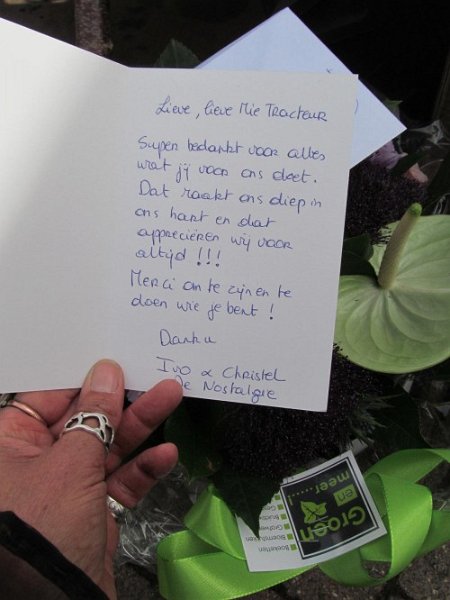 Lieve, lieve Mie Tracteur
Super bedankt voor alles
wat jij voor ons doet.
Dat raakt ons diep in
ons hart en dat
appreciëren wij voor
altijd !!!
Merci om te zijn en te
doen wie je bent !
Dank u
Ivo & Christel
De Nostalgie
Groen
en
meer.....
Bloemstukken
Boeketten